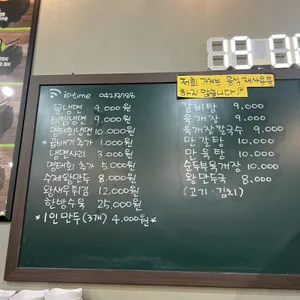 저희 가게는 음식 재사용을
하지 않습니다!
iptime
물냉면 9.000원
비빔냉면 9.000원
명태회냉면 10.000원
*곱배기 추가 1.000원
냉면사리 3.000원
명태회 추가 5.000원
수제왕만두 8.000원
왕새우튀김 12.000원
한방수육 25.000원
*1인만두(3개) 4.000원*
갈비탕 9.000
육개장 9.000
육개장칼국수 9.000
만갈탕 10.000
만육탕 10.000
순두부육개장 10.000
왕만두국 8.000
(고기·김치)